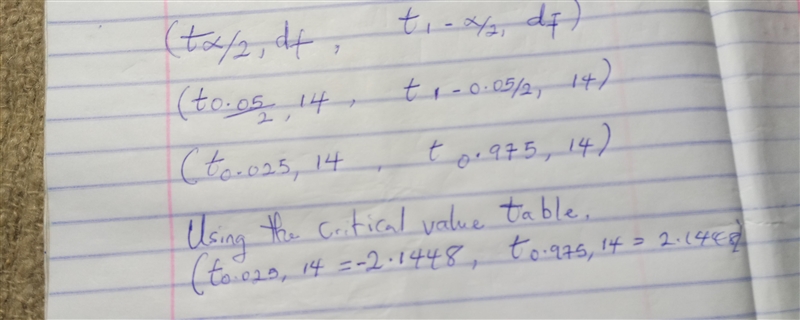 (tα/2, df, t1-α/2, df)
(t0.05/2, 14, t1-0.05/2, 14)
(t0.025, 14, t0.975, 14)
Using the critical value table.
(t0.025, 14 = -2.1448, t0.975, 14 = 2.1448)